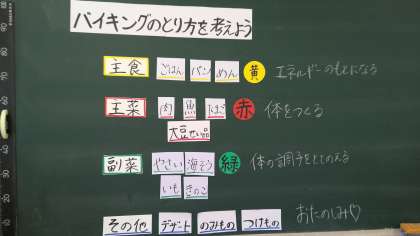 バイキングのとり方を考えよう
主食 ごはん パン めん 黄 エネルギーのもとになる
主菜 肉 魚 たまご 赤 体をつくる
大豆せい品
副菜 やさい 海そう 緑 体の調子をととのえる
いも きのこ
その他 デザート のみもの つけもの おたのしみ♡